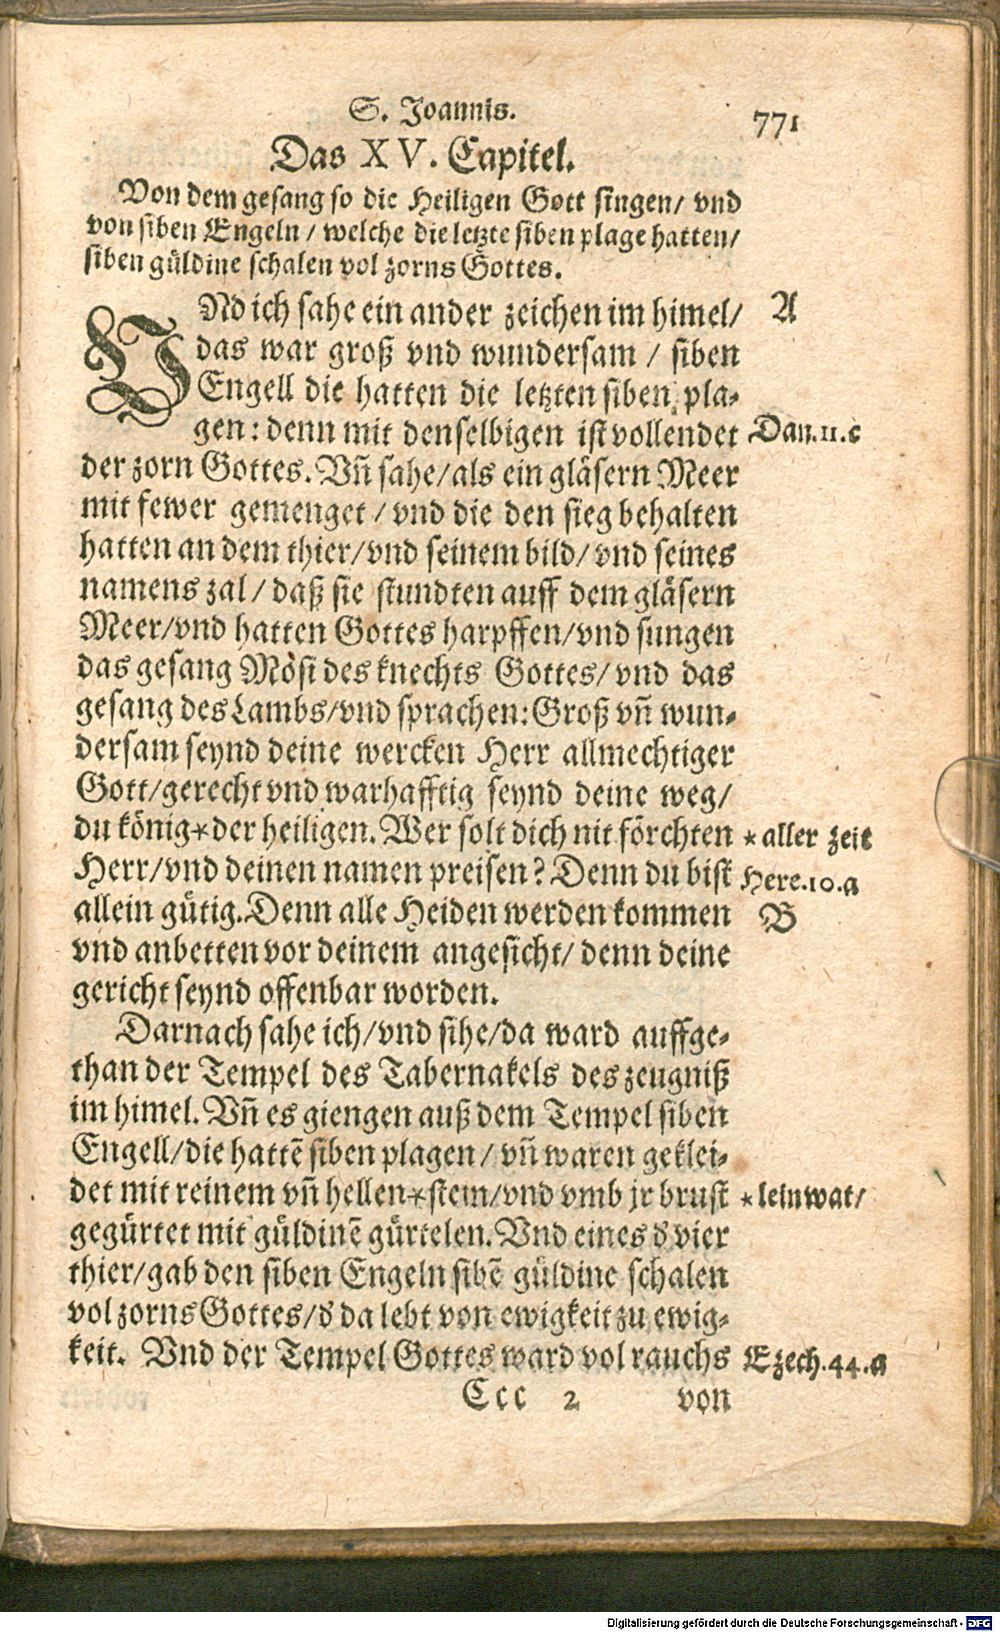 S. Joannis.
771
Das XV. Capitel.
Von dem gesang so die Heiligen Gott singen/ vnd
von siben Engeln/ welche die letzte siben plage hatten/
siben güldine schalen vol zorns Gottes.
VNd ich sahe ein ander zeichen im himel/ A
das war groß vnd wundersam / siben
Engell die hatten die letzten siben pla-
gen: denn mit denselbigen ist vollendet Dan.11.c
der zorn Gottes. Vñ sahe/als ein gläsern Meer
mit fewer gemenget / vnd die den sieg behalten
hatten an dem thier/vnd seinem bild/ vnd seines
namens zal / daß sie stundten auff dem gläsern
Meer/vnd hatten Gottes harpffen/vnd sungen
das gesang Mösi des knechts Gottes/ vnd das
gesang des Lambs/vnd sprachen: Groß vñ wun-
dersam seynd deine wercken Herr allmechtiger
Gott/gerecht vnd warhafftig seynd deine weg/
du könig*der heiligen. Wer solt dich nit förchten *aller zeit
Herr/vnd deinen namen preisen? Denn du bist Here.10.a
allein gütig. Denn alle Heiden werden kommen B
vnd anbetten vor deinem angesicht/ denn deine
gericht seynd offenbar worden.
Darnach sahe ich/vnd sihe/da ward auffge-
than der Tempel des Tabernakels des zeugniß
im himel. Vñ es giengen auß dem Tempel siben
Engell/die hattẽ siben plagen / vñ waren geklei-
det mit reinem vñ hellen*stein/vnd vmb jr brust *leinwat/
gegürtet mit güldinẽ gürtelen. Vnd eines d vier
thier/gab den siben Engeln sibẽ güldine schalen
vol zorns Gottes/d da lebt von ewigkeit zu ewig-
keit. Vnd der Tempel Gottes ward vol rauchs Ezech.44.a
Ccc 2 von
Digitalisierung gefördert durch die Deutsche Forschungsgemeinschaft - DFG